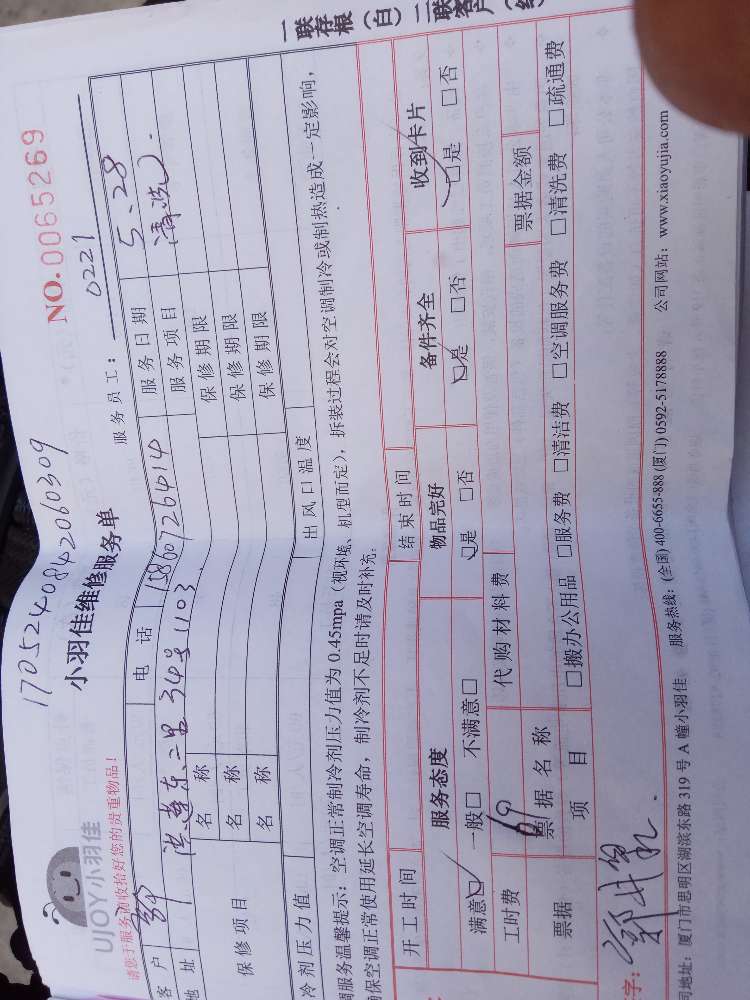 1705240842060309
UJOY小羽佳
小羽佳维修服务单
NO.0065269
请您于服务前收拾好您的贵重物品！
服务员工：0221
客户 电话 15860726414 服务日期 5.28
地址 洪莲东二里34号1103 服务项目 清洗
保修项目 名称 保修期限
名称 保修期限
名称 保修期限
冷剂压力值 出风口温度
调服务温馨提示：空调正常制冷剂压力值为0.45mpa（视环境、机型而定），拆装过程会对空调制冷或制热造成一定影响，
确保空调正常使用延长空调寿命，制冷剂不足时请及时补充。
开工时间 结束时间
服务态度 物品完好 备件齐全 收到卡片
满意☑ 一般□ 不满意□ □是 □否 □是 □否 □是 □否
工时费 69 代购材料费
票据 票据名称 票据金额
项目 □搬办公用品 □服务费 □清洁费 □空调服务费 □清洗费 □疏通费
字：
司地址：厦门市思明区湖滨东路319号A幢小羽佳 服务热线：(全国) 400-6655-888 (厦门) 0592-5178888 公司网站：www.xiaoyujia.com
一联存根（白）二联客户（红